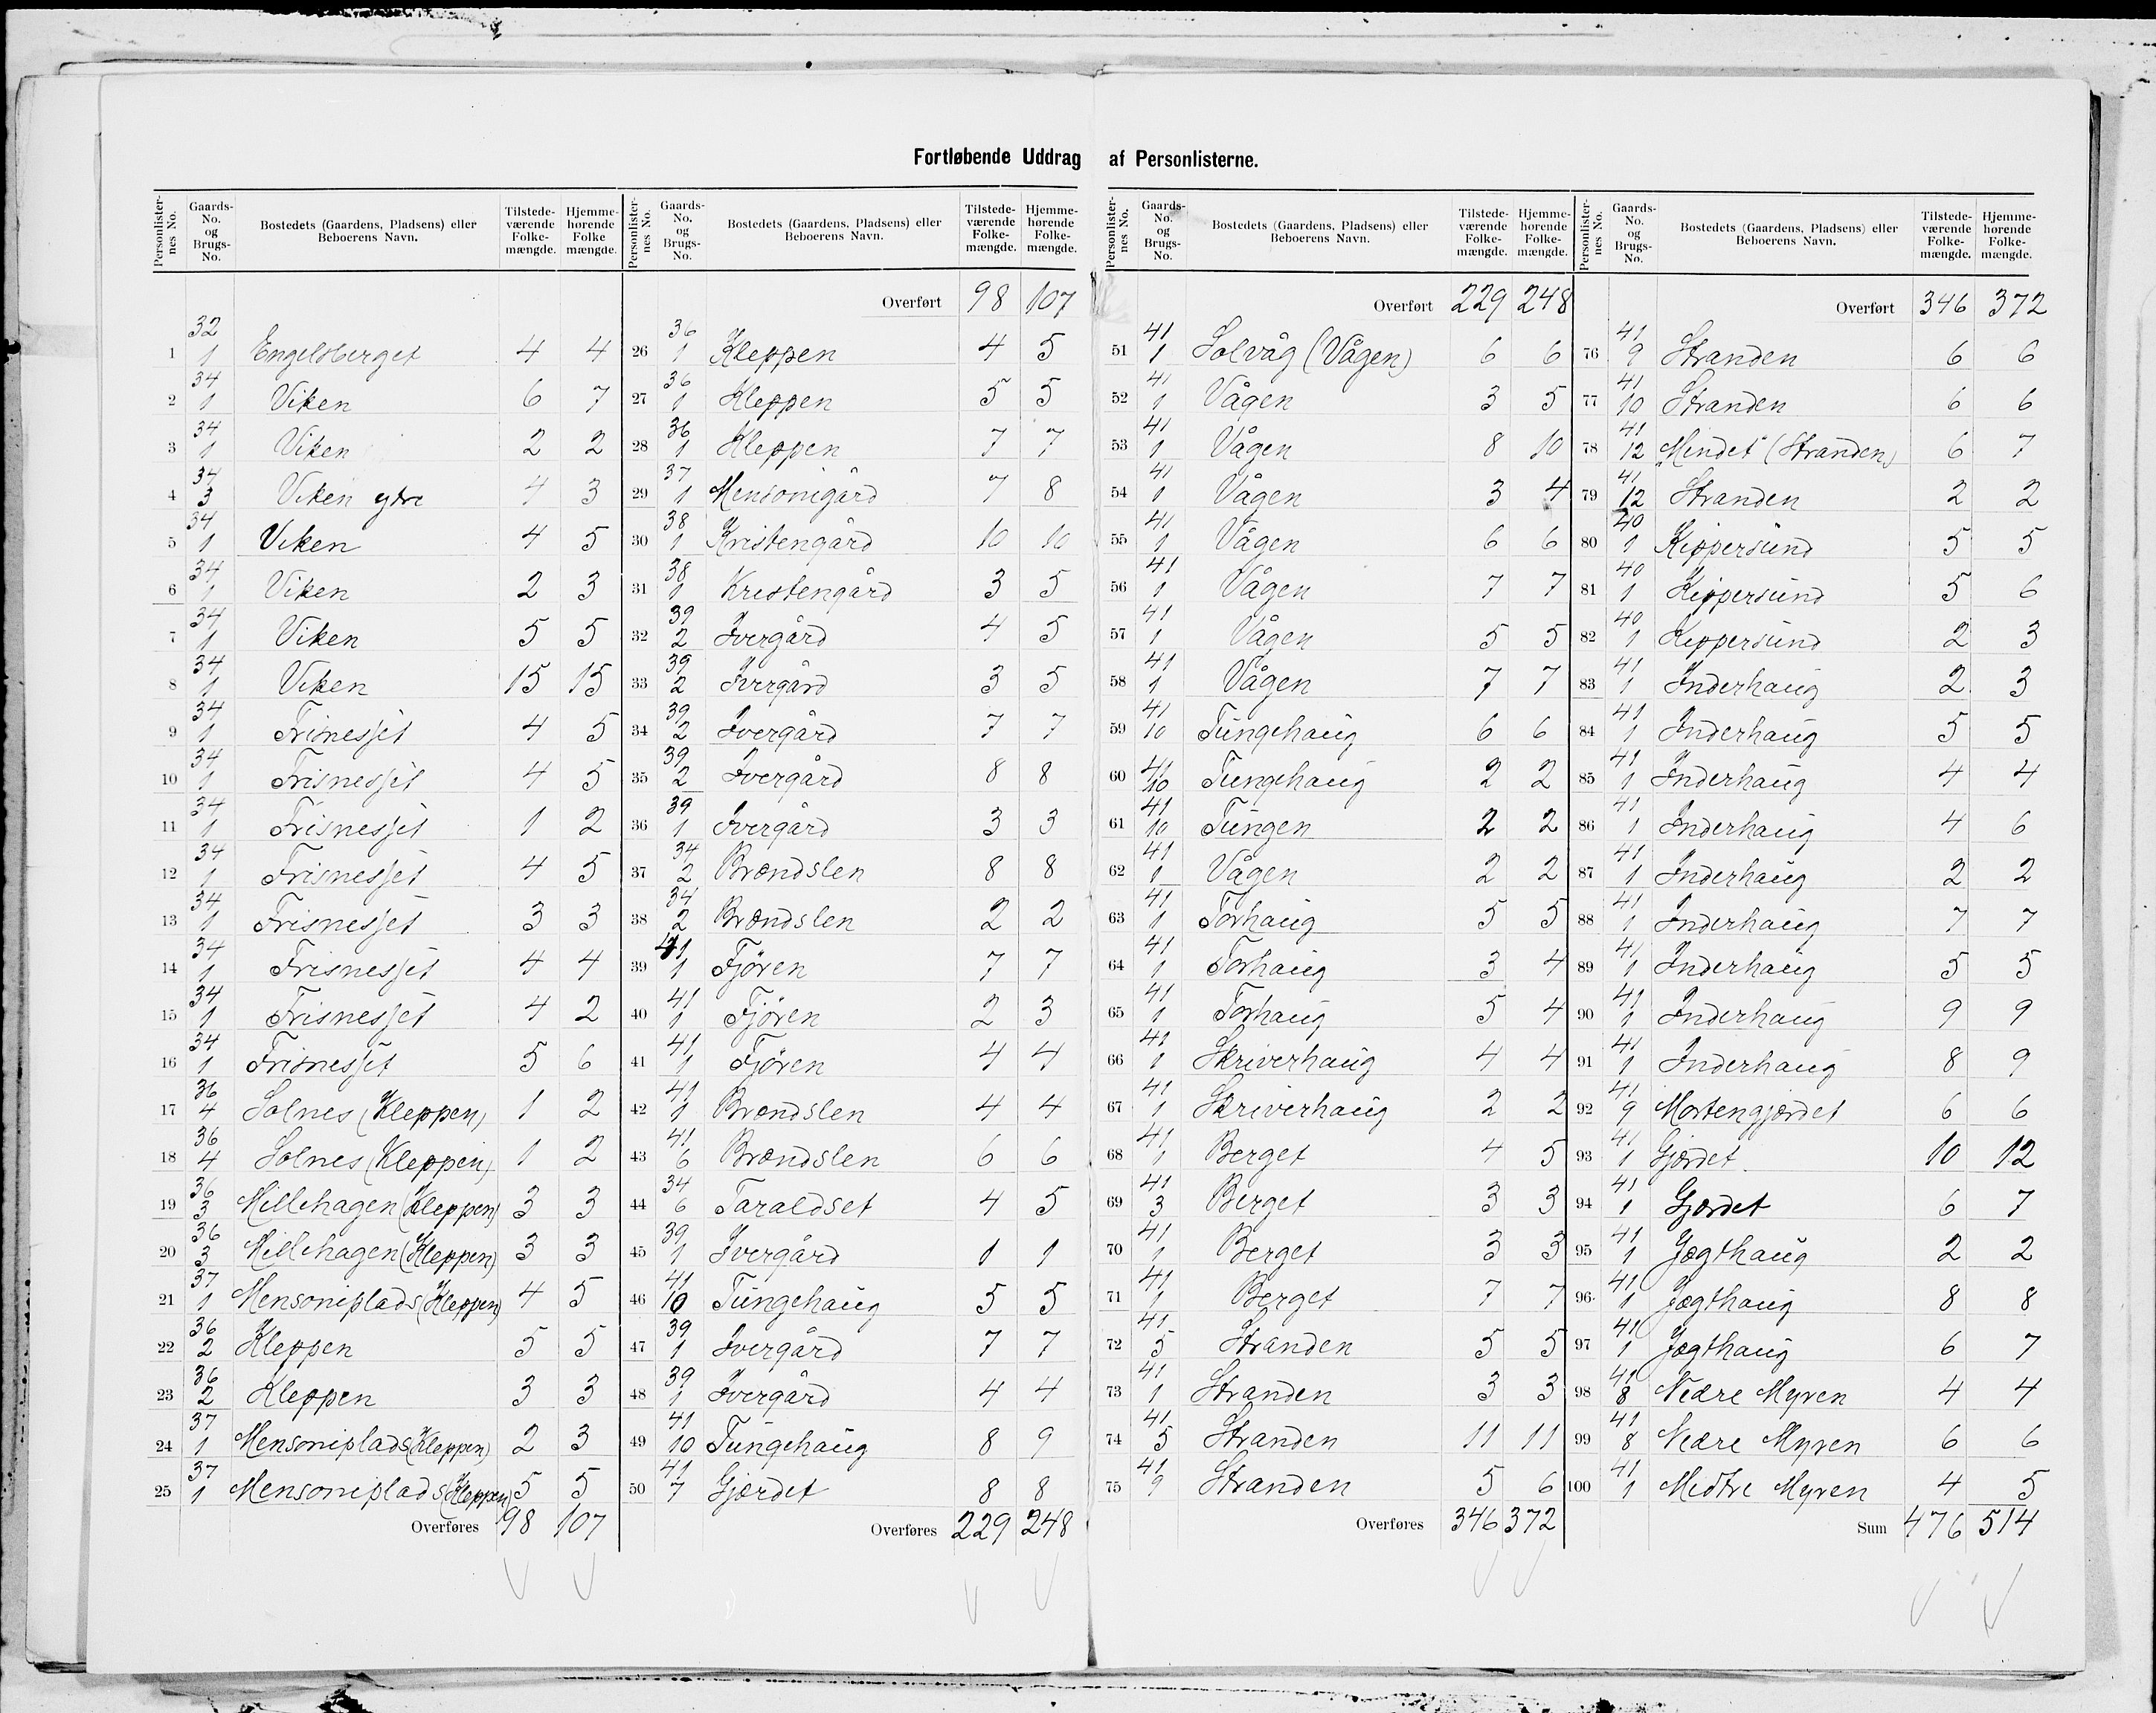 Fortløbende Uddrag af Personlisterne.
Personlister-nes No. | Gaards-No. og Brugs-No. | Bostedets (Gaardens, Pladsens) eller Beboerens Navn. | Tilstede-værende Folke-mængde. | Hjemme-hørende Folke mængde.
1 32/1 Engelsberget 4 4
2 34/1 Viken 6 7
3 34/1 Viken 2 2
4 34/3 Viken ytre 4 3
5 34/1 Viken 4 5
6 34/1 Viken 2 3
7 34/1 Viken 5 5
8 34/1 Viken 15 15
9 34/1 Frisnesset 4 5
10 34/1 Frisnesset 4 5
11 34/1 Frisnesset 1 2
12 34/1 Frisnesset 4 5
13 34/1 Frisnesset 3 3
14 34/1 Frisnesset 4 4
15 34/1 Frisnesset 4 2
16 34/1 Frisnesset 5 6
17 36/4 Solnes (Kleppen) 1 2
18 36/4 Solnes (Kleppen) 1 2
19 36/3 Millehagen (Kleppen) 3 3
20 36/3 Millehagen (Kleppen) 3 3
21 37/1 Mensoniplads (Kleppen) 4 5
22 36/2 Kleppen 5 5
23 36/2 Kleppen 3 3
24 37/1 Mensoniplads (Kleppen) 2 3
25 37/1 Mensoniplads (Kleppen) 5 5
Overføres 98 107
Personlister-nes No. | Gaards-No. og Brugs-No. | Bostedets (Gaardens, Pladsens) eller Beboerens Navn. | Tilstede-værende Folke-mængde. | Hjemme-hørende Folke-mængde.
Overført 98 107
26 36/1 Kleppen 4 5
27 36/1 Kleppen 5 5
28 36/1 Kleppen 7 7
29 37/1 Mensonigård 7 8
30 38/1 Kristengård 10 10
31 38/1 Kristengård 3 5
32 39/2 Ivergård 4 5
33 39/2 Ivergård 3 5
34 39/2 Ivergård 7 7
35 39/2 Ivergård 8 8
36 39/1 Ivergård 3 3
37 34/2 Brændslen 8 8
38 34/2 Brændslen 2 2
39 41/1 Fjören 7 7
40 41/1 Fjören 2 3
41 41/1 Fjören 4 4
42 41/1 Brændslen 4 4
43 41/6 Brændslen 6 6
44 34/6 Taraldset 4 5
45 39/1 Ivergård 1 1
46 41/10 Tungehaug 5 5
47 39/1 Ivergård 7 7
48 39/1 Ivergård 4 4
49 41/10 Tungehaug 8 9
50 41/7 Gjærdet 8 8
Overføres 229 248
Personlister-nes No. | Gaards-No. og Brugs-No. | Bostedets (Gaardens, Pladsens) eller Beboerens Navn. | Tilstede-værende Folke-mængde. | Hjemme-hørende Folke-mængde.
Overført 229 248
51 41/1 Solvåg (Vågen) 6 6
52 41/1 Vågen 3 5
53 41/1 Vågen 8 10
54 41/1 Vågen 3 4
55 41/1 Vågen 6 6
56 41/1 Vågen 7 7
57 41/1 Vågen 5 5
58 41/1 Vågen 7 7
59 41/10 Tungehaug 6 6
60 41/10 Tungehaug 2 2
61 41/10 Tungen 2 2
62 41/1 Vågen 2 2
63 41/1 Torhaug 5 5
64 41/1 Torhaug 3 4
65 41/1 Torhaug 5 4
66 41/1 Skriverhaug 4 4
67 41/1 Skriverhaug 2 2
68 41/1 Berget 4 5
69 41/3 Berget 3 3
70 41/1 Berget 3 3
71 41/1 Berget 7 7
72 41/5 Stranden 5 5
73 41/1 Stranden 3 3
74 41/5 Stranden 11 11
75 41/9 Stranden 5 6
Overføres 346 372
Personlister-nes No. | Gaards-No. og Brugs-No. | Bostedets (Gaardens, Pladsens) eller Beboerens Navn. | Tilstede-værende Folke-mængde. | Hjemme-hørende Folke-mængde.
Overført 346 372
76 41/9 Stranden 6 6
77 41/10 Stranden 6 6
78 41/12 "Mindet" (Stranden) 6 7
79 41/12 Stranden 2 2
80 40/1 Kippersund 5 5
81 40/1 Kippersund 5 6
82 40/1 Kippersund 2 3
83 41/1 Inderhaug 2 3
84 41/1 Inderhaug 5 5
85 41/1 Inderhaug 4 4
86 41/1 Inderhaug 4 6
87 41/1 Inderhaug 2 2
88 41/1 Inderhaug 7 7
89 41/1 Inderhaug 5 5
90 41/1 Inderhaug 9 9
91 41/1 Inderhaug 8 9
92 41/9 Mortengjærdet 6 6
93 41/1 Gjærdet 10 12
94 41/1 Gjærdet 6 7
95 41/1 Jægthaug 2 2
96 41/1 Jægthaug 8 8
97 41/1 Jægthaug 6 7
98 41/8 Nedre Myren 4 4
99 41/8 Nedre Myren 6 6
100 41/1 Midtre Myren 4 5
Sum 476 514